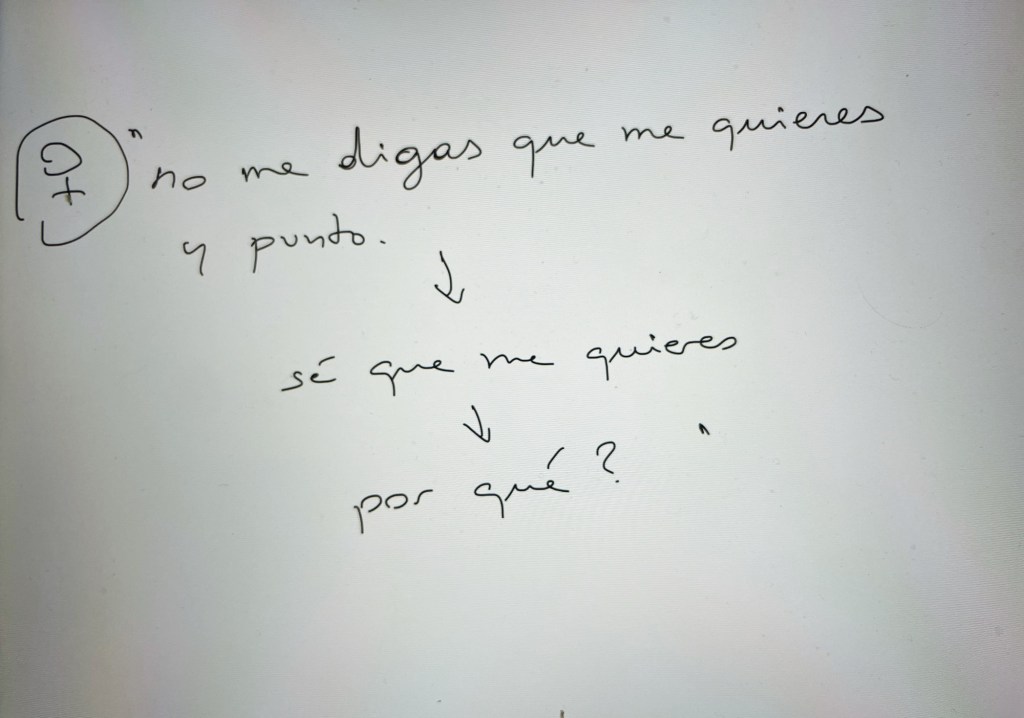 ♀ "no me digas que me quieres
y punto.
↓
sé que me quieres
↓
por qué? "